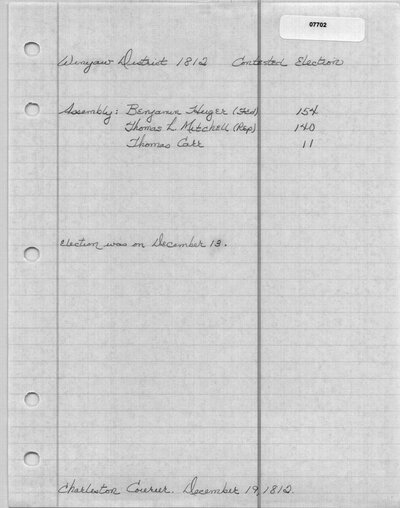 07702
Winyaw District 1812 Contested Election
Assembly: Benjamin Huger (Fed) 154
Thomas L. Mitchell (Rep) 140
Thomas Carr 11
Election was on December 13.
Charleston Courier. December 19, 1812.